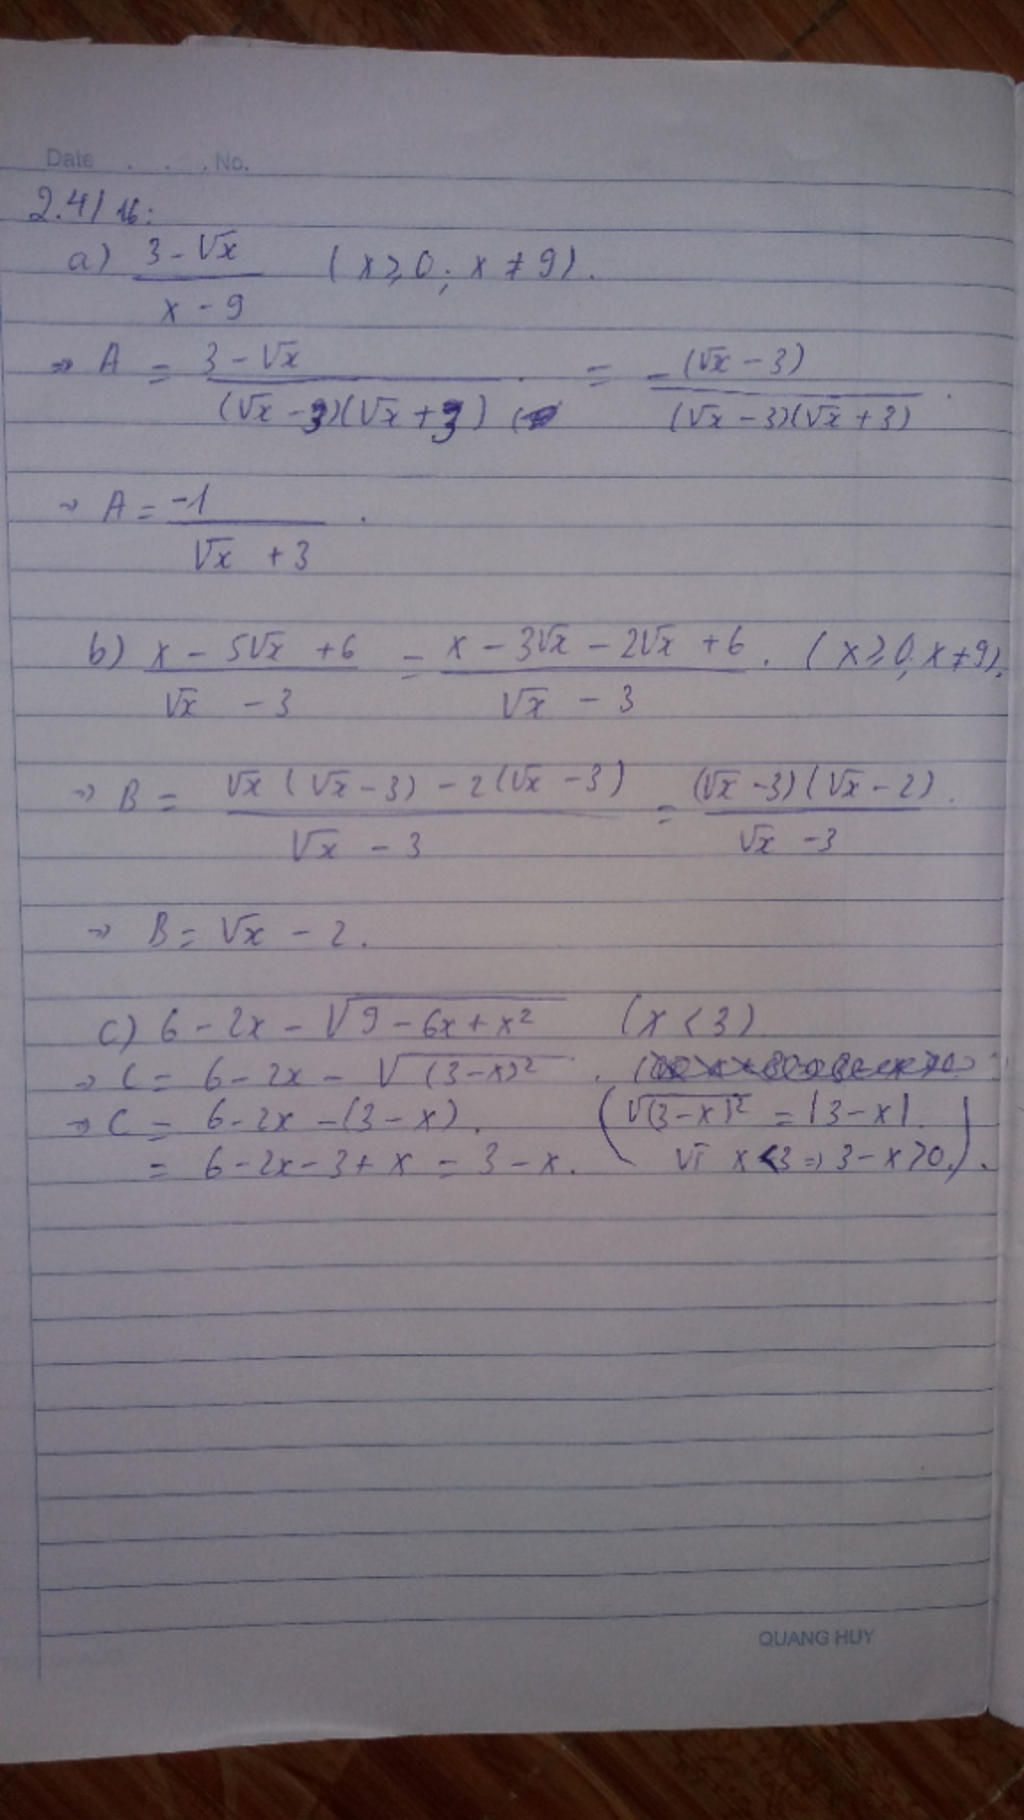 Date . . . No.
2.4/16:
a) (3 - √x)/(x - 9) (x ≥ 0; x ≠ 9).
⇒ A = (3 - √x)/((√x - 3)(√x + 3)) = -(√x - 3)/((√x - 3)(√x + 3)).
⇒ A = -1/(√x + 3).
b) (x - 5√x + 6)/(√x - 3) = (x - 3√x - 2√x + 6)/(√x - 3). (x ≥ 0, x ≠ 9).
⇒ B = (√x(√x - 3) - 2(√x - 3))/(√x - 3) = ((√x - 3)(√x - 2))/(√x - 3).
⇒ B = √x - 2.
c) 6 - 2x - √(9 - 6x + x²) (x < 3)
⇒ C = 6 - 2x - √((3 - x)²).
⇒ C = 6 - 2x - (3 - x). (√((3 - x)²) = |3 - x|.
= 6 - 2x - 3 + x = 3 - x. Vì x < 3 ⇒ 3 - x > 0.).
QUANG HUY